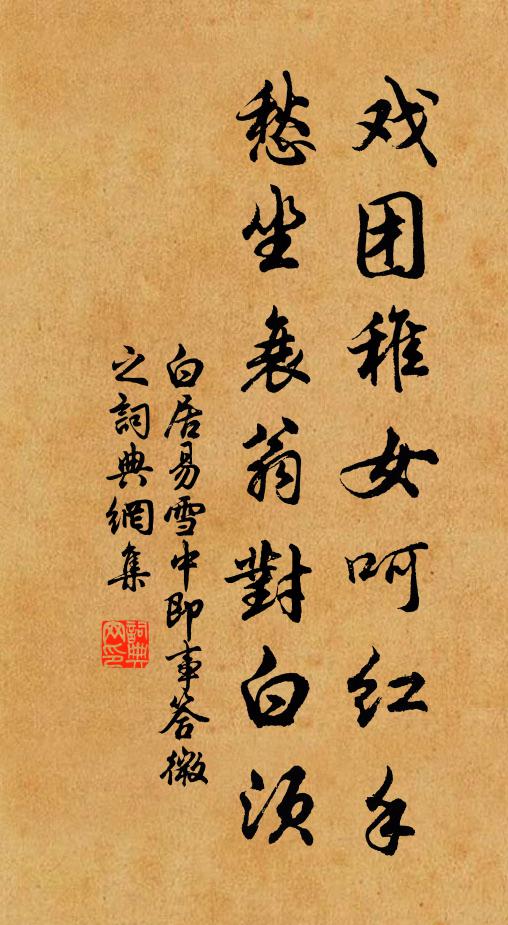 戏团稚女呵红手
愁坐衰翁對白须
白居易雪中即事答微
之詞典網集
詞典网印